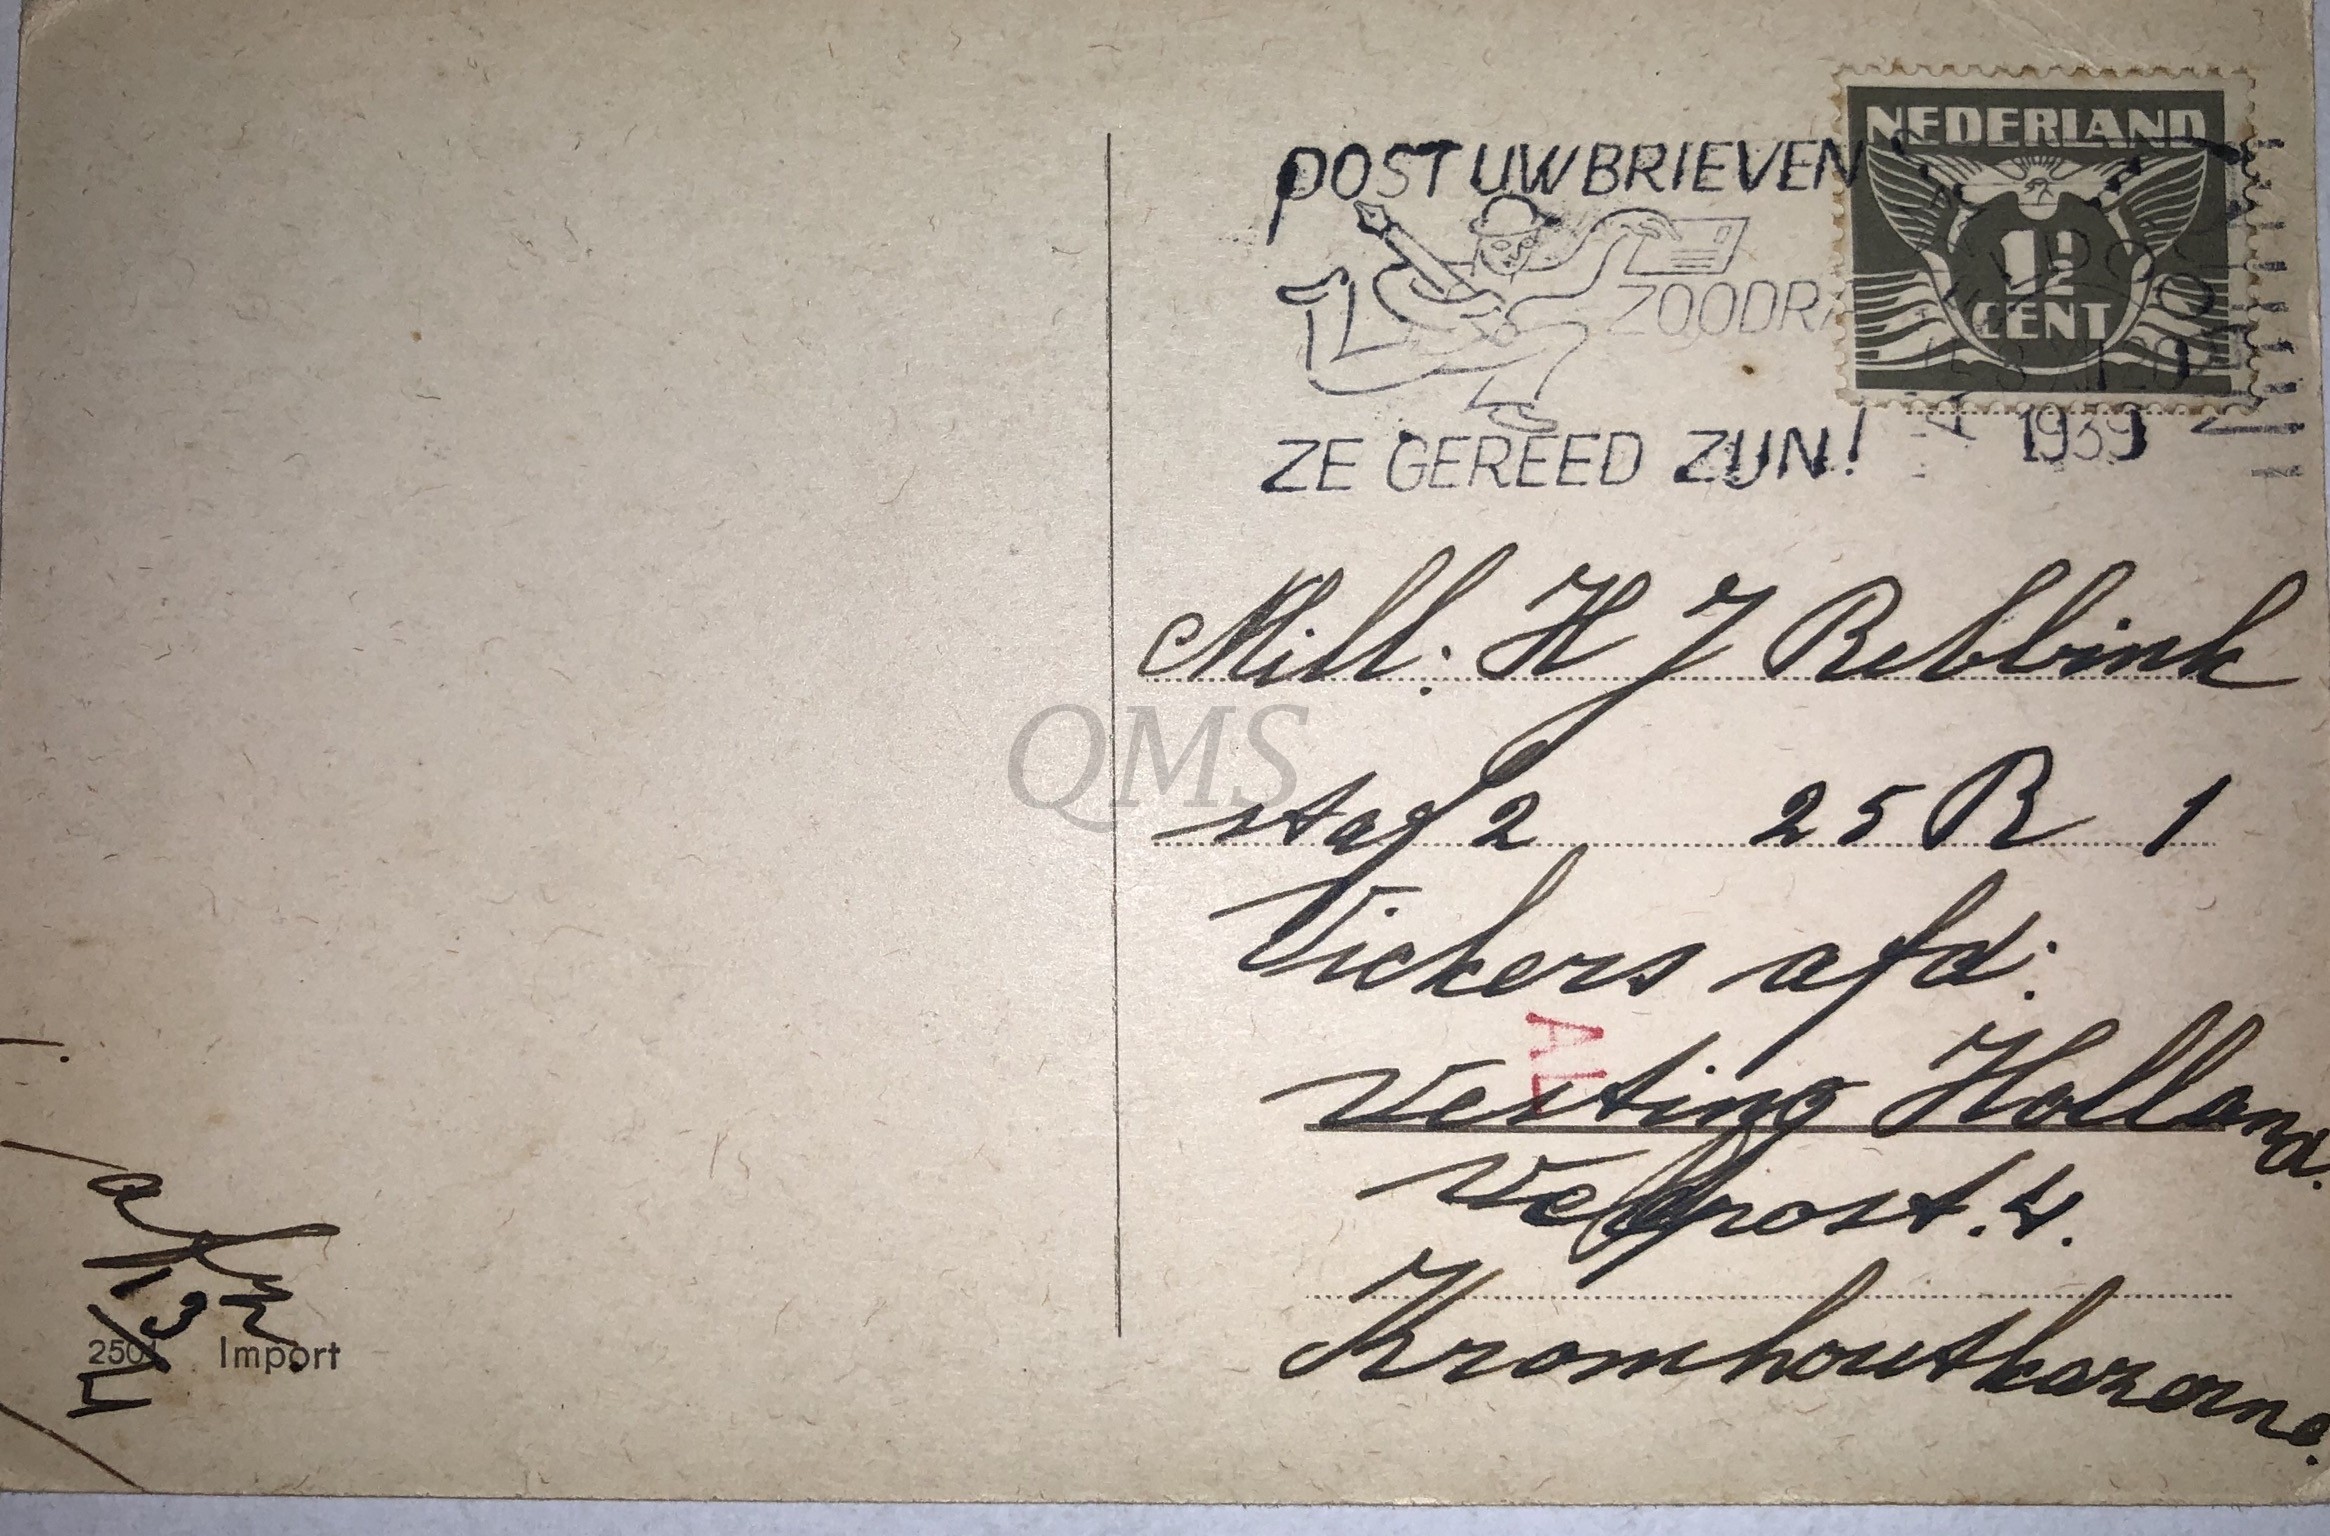 NEDERLAND
1½
CENT
POST UW BRIEVEN
ZOODRA
ZE GEREED ZIJN!
1939
Mill: H J Rebbink
staf 2 25 R 1
Vickers afd:
AL
Vesting Holland.
Veldpost. 4.
Kromhoutkazerne.
QMS
2501 Import